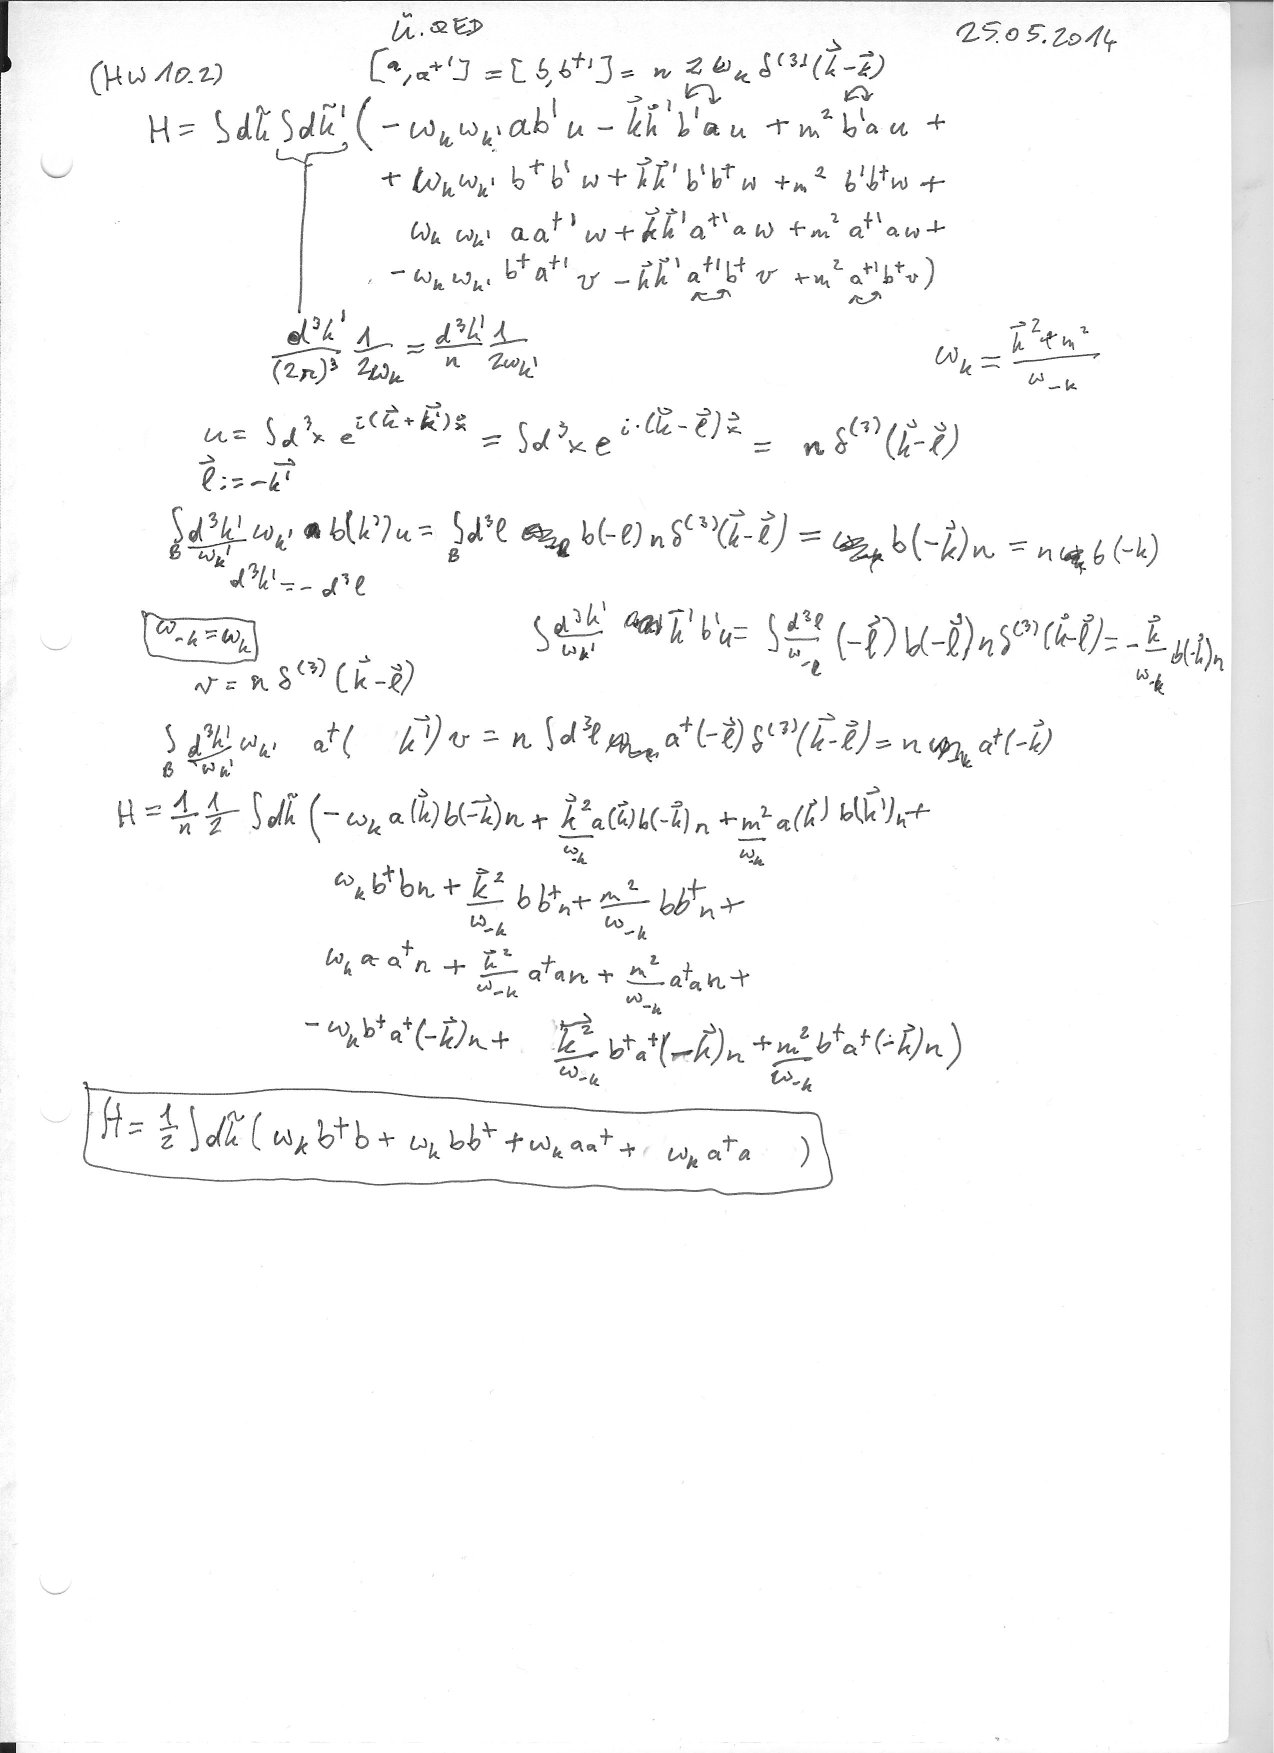 Ü. QED
25.05.2014
(HW 10.2)
[a, a⁺'] = [b, b⁺'] = n 2ω_k δ⁽³⁾(k⃗-k⃗)
H = ∫dk̃ ∫dk̃' (-ω_k ω_k' ab'u - k⃗k⃗'b'a u + m² b'a u +
+ ω_k ω_k' b⁺b'w + k⃗k⃗' b'b⁺w + m² b'b⁺w +
ω_k ω_k' aa⁺'w + k⃗k⃗'a⁺'aw + m² a⁺'aw +
- ω_k ω_k' b⁺a⁺'v - k⃗k⃗' a⁺'b⁺ v + m² a⁺'b⁺v)
d³k'/(2π)³ 1/2ω_k = d³k'/n 1/2ω_k'
ω_k = (k⃗² + m²)/ω_-k
u = ∫d³x e^{i(k⃗+k⃗')x⃗} = ∫d³x e^{i·(k⃗-l⃗)x⃗} = n δ⁽³⁾(k⃗-l⃗)
l⃗ := -k⃗'
∫_B d³k'/ω_k' ω_k' b(k')u = ∫_B d³l b(-l) n δ⁽³⁾(k⃗-l⃗) = b(-k⃗)n = n b(-k)
d³k' = - d³l
ω_-k = ω_k
∫ d³k'/ω_k' k⃗'b'u = ∫ d³l/ω_-l (-l⃗) b(-l⃗) n δ⁽³⁾(k⃗-l⃗) = - k⃗/ω_-k b(-k⃗)n
v = n δ⁽³⁾(k⃗-l⃗)
∫_B d³k'/ω_k' ω_k' a⁺( k⃗')v = n ∫d³l a⁺(-l⃗) δ⁽³⁾(k⃗-l⃗) = n a⁺(-k⃗)
H = 1/n 1/2 ∫dk̃ (-ω_k a(k⃗)b(-k⃗)n + k⃗²/ω_-k a(k⃗)b(-k⃗)n + m²/ω_-k a(k⃗) b(k⃗')n +
ω_k b⁺bn + k⃗²/ω_-k bb⁺n + m²/ω_-k bb⁺n +
ω_k a a⁺n + k⃗²/ω_-k a⁺an + m²/ω_-k a⁺an +
- ω_k b⁺a⁺(-k⃗)n + k⃗²/ω_-k b⁺a⁺(-k⃗)n + m²/ω_-k b⁺a⁺(-k⃗)n)
H = 1/2 ∫dk̃ (ω_k b⁺b + ω_k bb⁺ + ω_k aa⁺ + ω_k a⁺a )